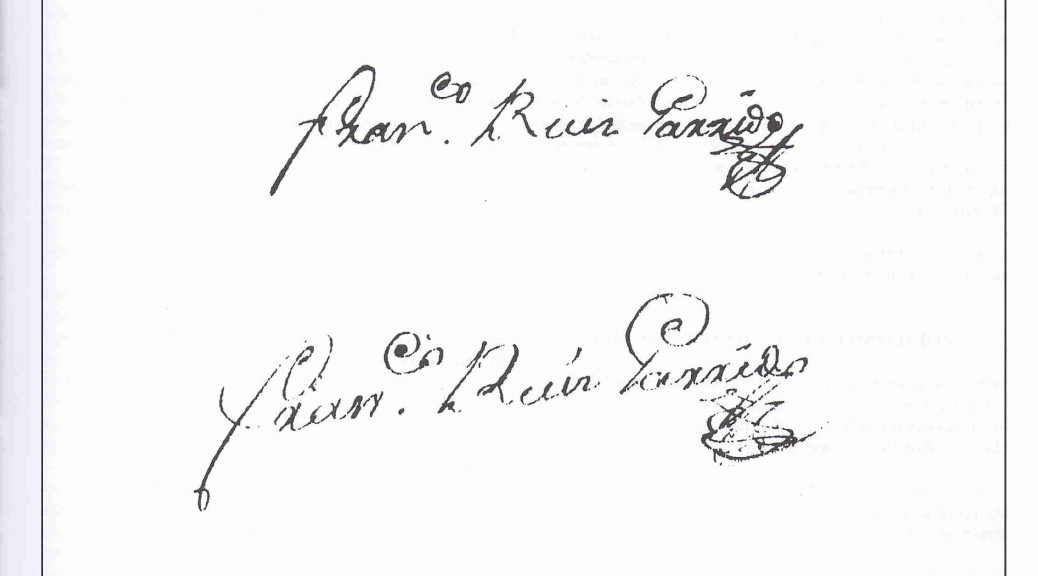 Fran.ᶜᵒ Ruiz Garrido
Fran.ᶜᵒ Ruiz Garrido